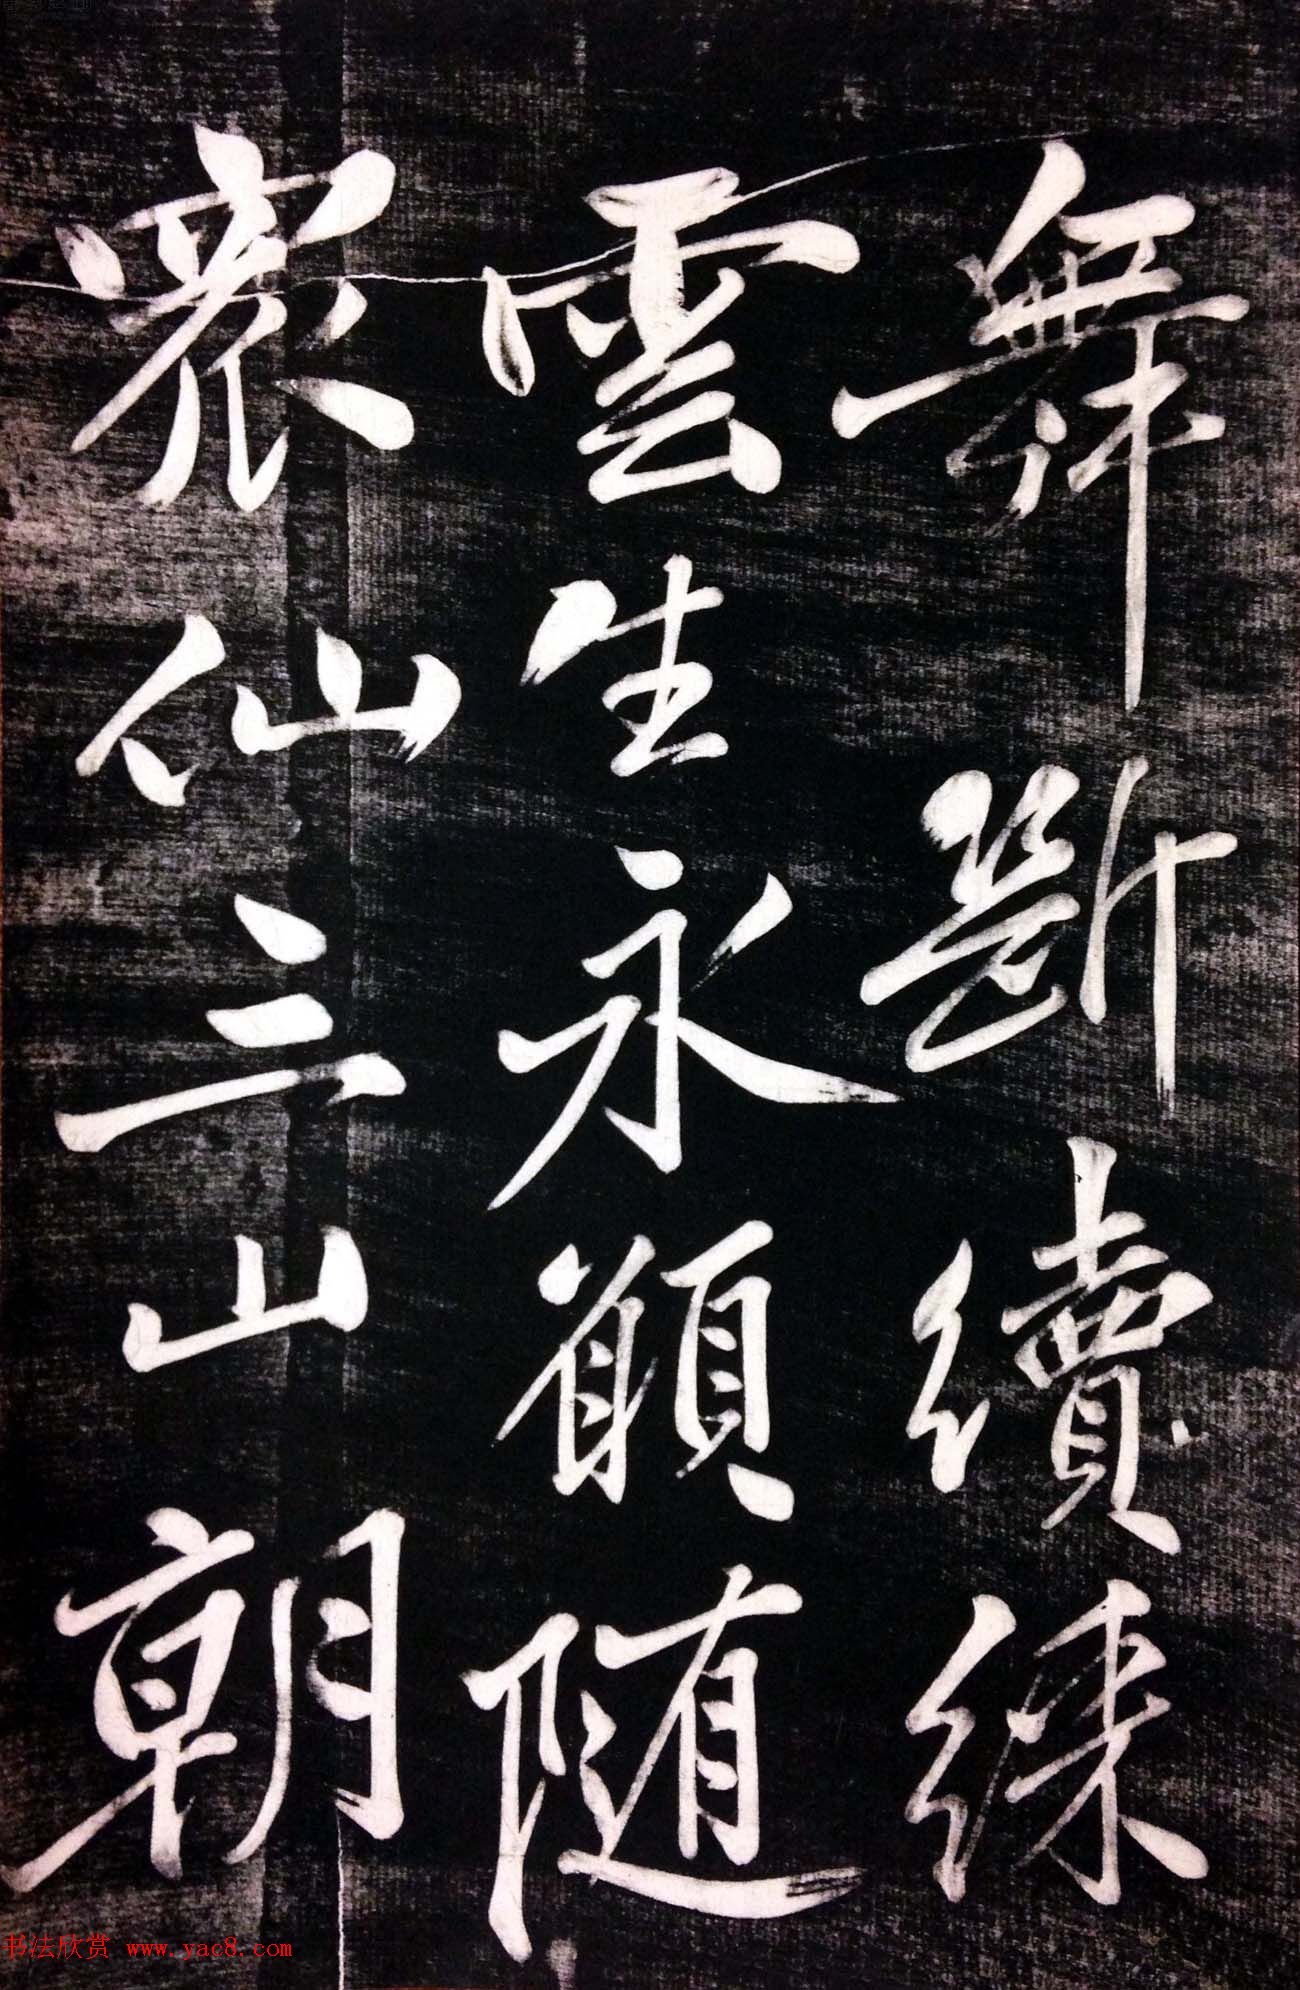 舞斷續練
雲生永願隨
衆仙三山朝
书法欣赏 www.yac8.com